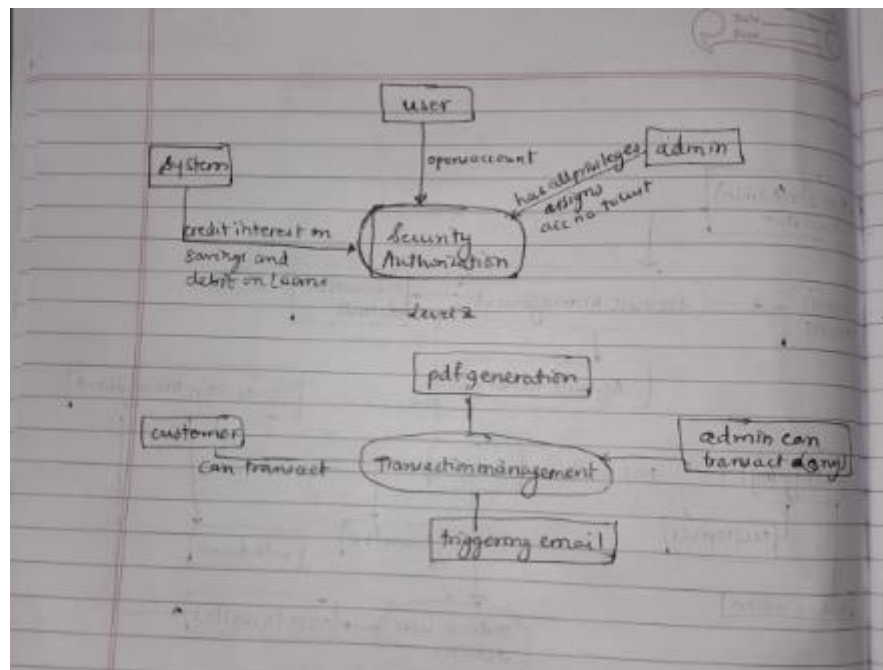 Date
Page
user
System
open account
admin
has all privileges
assigns
acc no to cust
credit interest on
savings and
debit on Loans
Security
Authorization
Level 2
pdf generation
customer
can transact
Transaction management
admin can
transact
triggering email